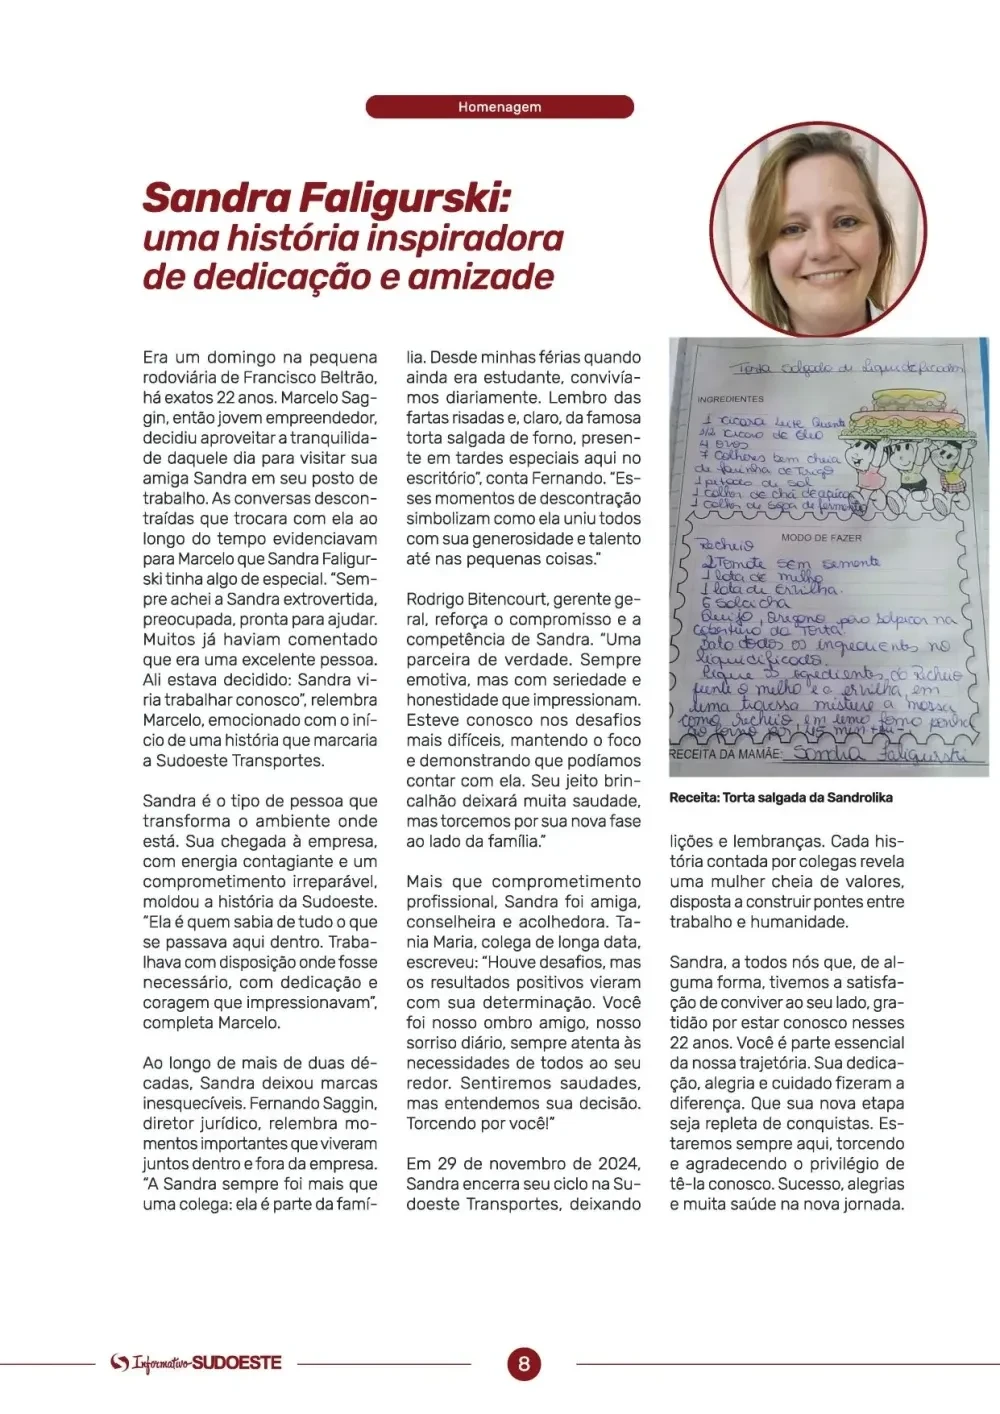 Homenagem
Sandra Faligurski:
uma história inspiradora
de dedicação e amizade
Era um domingo na pequena
rodoviária de Francisco Beltrão,
há exatos 22 anos. Marcelo Sag-
gin, então jovem empreendedor,
decidiu aproveitar a tranquilida-
de daquele dia para visitar sua
amiga Sandra em seu posto de
trabalho. As conversas descon-
traídas que trocara com ela ao
longo do tempo evidenciavam
para Marcelo que Sandra Faligur-
ski tinha algo de especial. “Sem-
pre achei a Sandra extrovertida,
preocupada, pronta para ajudar.
Muitos já haviam comentado
que era uma excelente pessoa.
Ali estava decidido: Sandra vi-
ria trabalhar conosco”, relembra
Marcelo, emocionado com o iní-
cio de uma história que marcaria
a Sudoeste Transportes.
Sandra é o tipo de pessoa que
transforma o ambiente onde
está. Sua chegada à empresa,
com energia contagiante e um
comprometimento irreparável,
moldou a história da Sudoeste.
“Ela é quem sabia de tudo o que
se passava aqui dentro. Traba-
lhava com disposição onde fosse
necessário, com dedicação e
coragem que impressionavam”,
completa Marcelo.
Ao longo de mais de duas dé-
cadas, Sandra deixou marcas
inesquecíveis. Fernando Saggin,
diretor jurídico, relembra mo-
mentos importantes que viveram
juntos dentro e fora da empresa.
“A Sandra sempre foi mais que
uma colega: ela é parte da famí-
lia. Desde minhas férias quando
ainda era estudante, convivía-
mos diariamente. Lembro das
fartas risadas e, claro, da famosa
torta salgada de forno, presen-
te em tardes especiais aqui no
escritório”, conta Fernando. “Es-
ses momentos de descontração
simbolizam como ela uniu todos
com sua generosidade e talento
até nas pequenas coisas.”
Rodrigo Bitencourt, gerente ge-
ral, reforça o compromisso e a
competência de Sandra. “Uma
parceira de verdade. Sempre
emotiva, mas com seriedade e
honestidade que impressionam.
Esteve conosco nos desafios
mais difíceis, mantendo o foco
e demonstrando que podíamos
contar com ela. Seu jeito brin-
calhão deixará muita saudade,
mas torcemos por sua nova fase
ao lado da família.”
Mais que comprometimento
profissional, Sandra foi amiga,
conselheira e acolhedora. Ta-
nia Maria, colega de longa data,
escreveu: “Houve desafios, mas
os resultados positivos vieram
com sua determinação. Você
foi nosso ombro amigo, nosso
sorriso diário, sempre atenta às
necessidades de todos ao seu
redor. Sentiremos saudades,
mas entendemos sua decisão.
Torcendo por você!”
Em 29 de novembro de 2024,
Sandra encerra seu ciclo na Su-
doeste Transportes, deixando
Torta salgada de liquidificador
INGREDIENTES
1 xicara Leite Quente
1/2 xicara de óleo
4 ovos
7 Colheres bem cheia
de farinha de Trigo
1 pitada de sal
1 colher de chá de açúcar
1 colher de sopa de fermento
MODO DE FAZER
Recheio
2 Tomate sem semente
1 lata de milho
1 lata de Ervilha.
6 Salcicha
Queijo, Oregano para salpicar na
cobertura da Torta.
Bata todos os ingredientes no
liquidificador.
os ingredientes do Recheio
o milho e a ervilha, em
uma misture a massa
Recheio em uma forma
ao forno por 45 min
RECEITA DA MAMÃE: Sandra Faligurski
Receita: Torta salgada da Sandrolika
lições e lembranças. Cada his-
tória contada por colegas revela
uma mulher cheia de valores,
disposta a construir pontes entre
trabalho e humanidade.
Sandra, a todos nós que, de al-
guma forma, tivemos a satisfa-
ção de conviver ao seu lado, gra-
tidão por estar conosco nesses
22 anos. Você é parte essencial
da nossa trajetória. Sua dedica-
ção, alegria e cuidado fizeram a
diferença. Que sua nova etapa
seja repleta de conquistas. Es-
taremos sempre aqui, torcendo
e agradecendo o privilégio de
tê-la conosco. Sucesso, alegrias
e muita saúde na nova jornada.
Informativo SUDOESTE
8